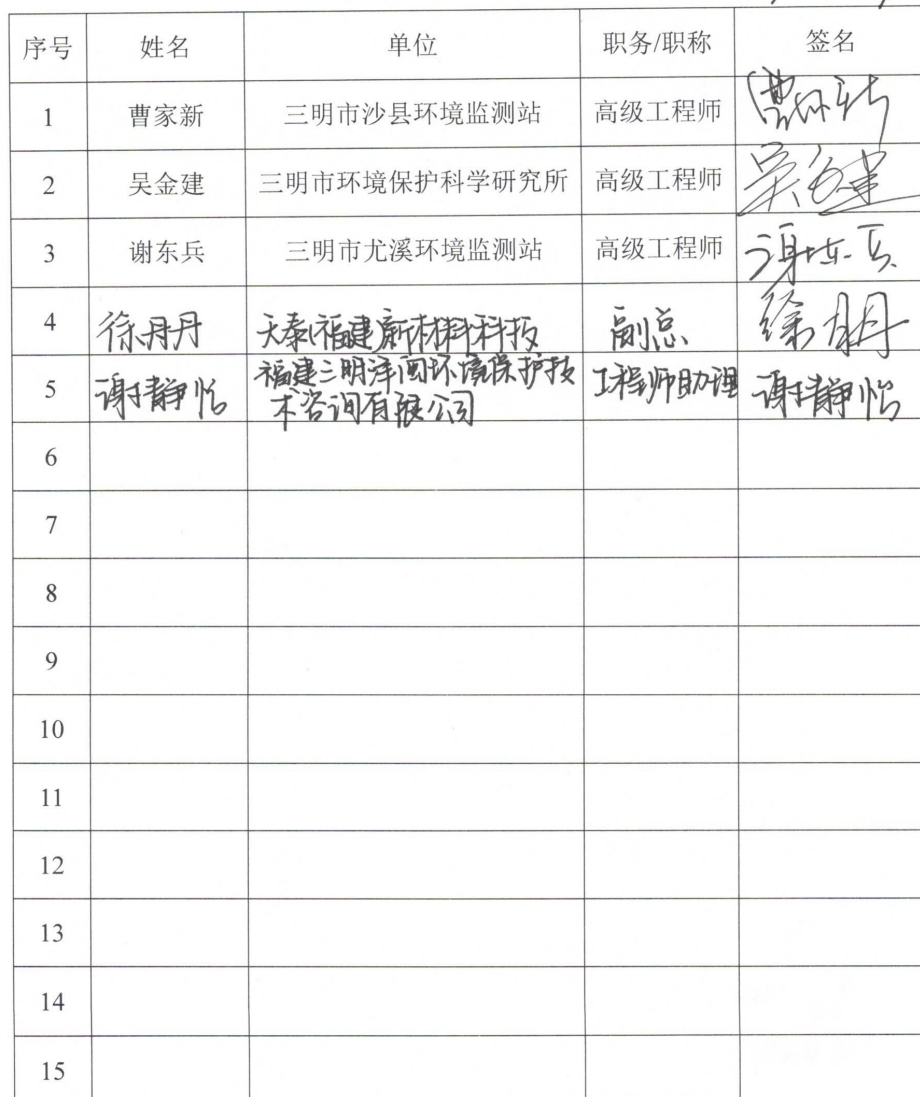 序号 姓名 单位 职务/职称 签名
1 曹家新 三明市沙县环境监测站 高级工程师 曹家新
2 吴金建 三明市环境保护科学研究所 高级工程师 吴金建
3 谢东兵 三明市尤溪环境监测站 高级工程师 谢东兵
4 徐丹丹 天泰(福建)新材料科技 副总 徐丹丹
5 谢静怡 福建三明泽闽环境保护技 工程师助理 谢静怡
术咨询有限公司
6
7
8
9
10
11
12
13
14
15